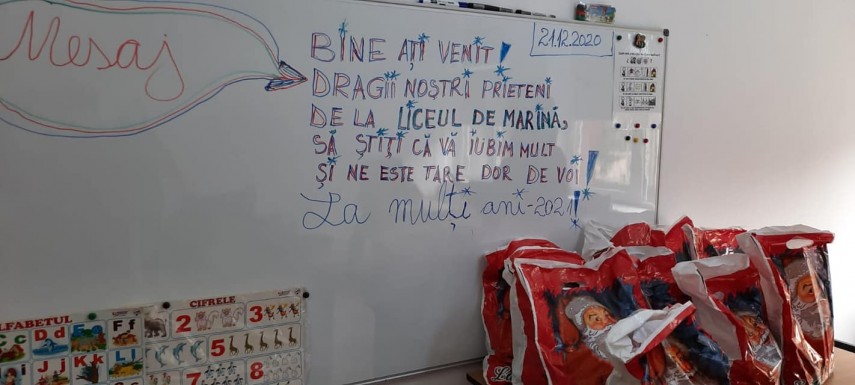 Mesaj
BINE AȚI VENIT!
21.12.2020
DRAGII NOȘTRI PRIETENI
DE LA LICEUL DE MARINĂ,
SĂ ȘTIȚI CĂ VĂ IUBIM MULT
ȘI NE ESTE TARE DOR DE VOI!
La mulți ani-2021!
LFABETUL
CIFRELE
Cc Dd Ee Ff
Jj Kk Ll
2 3
5
7 8